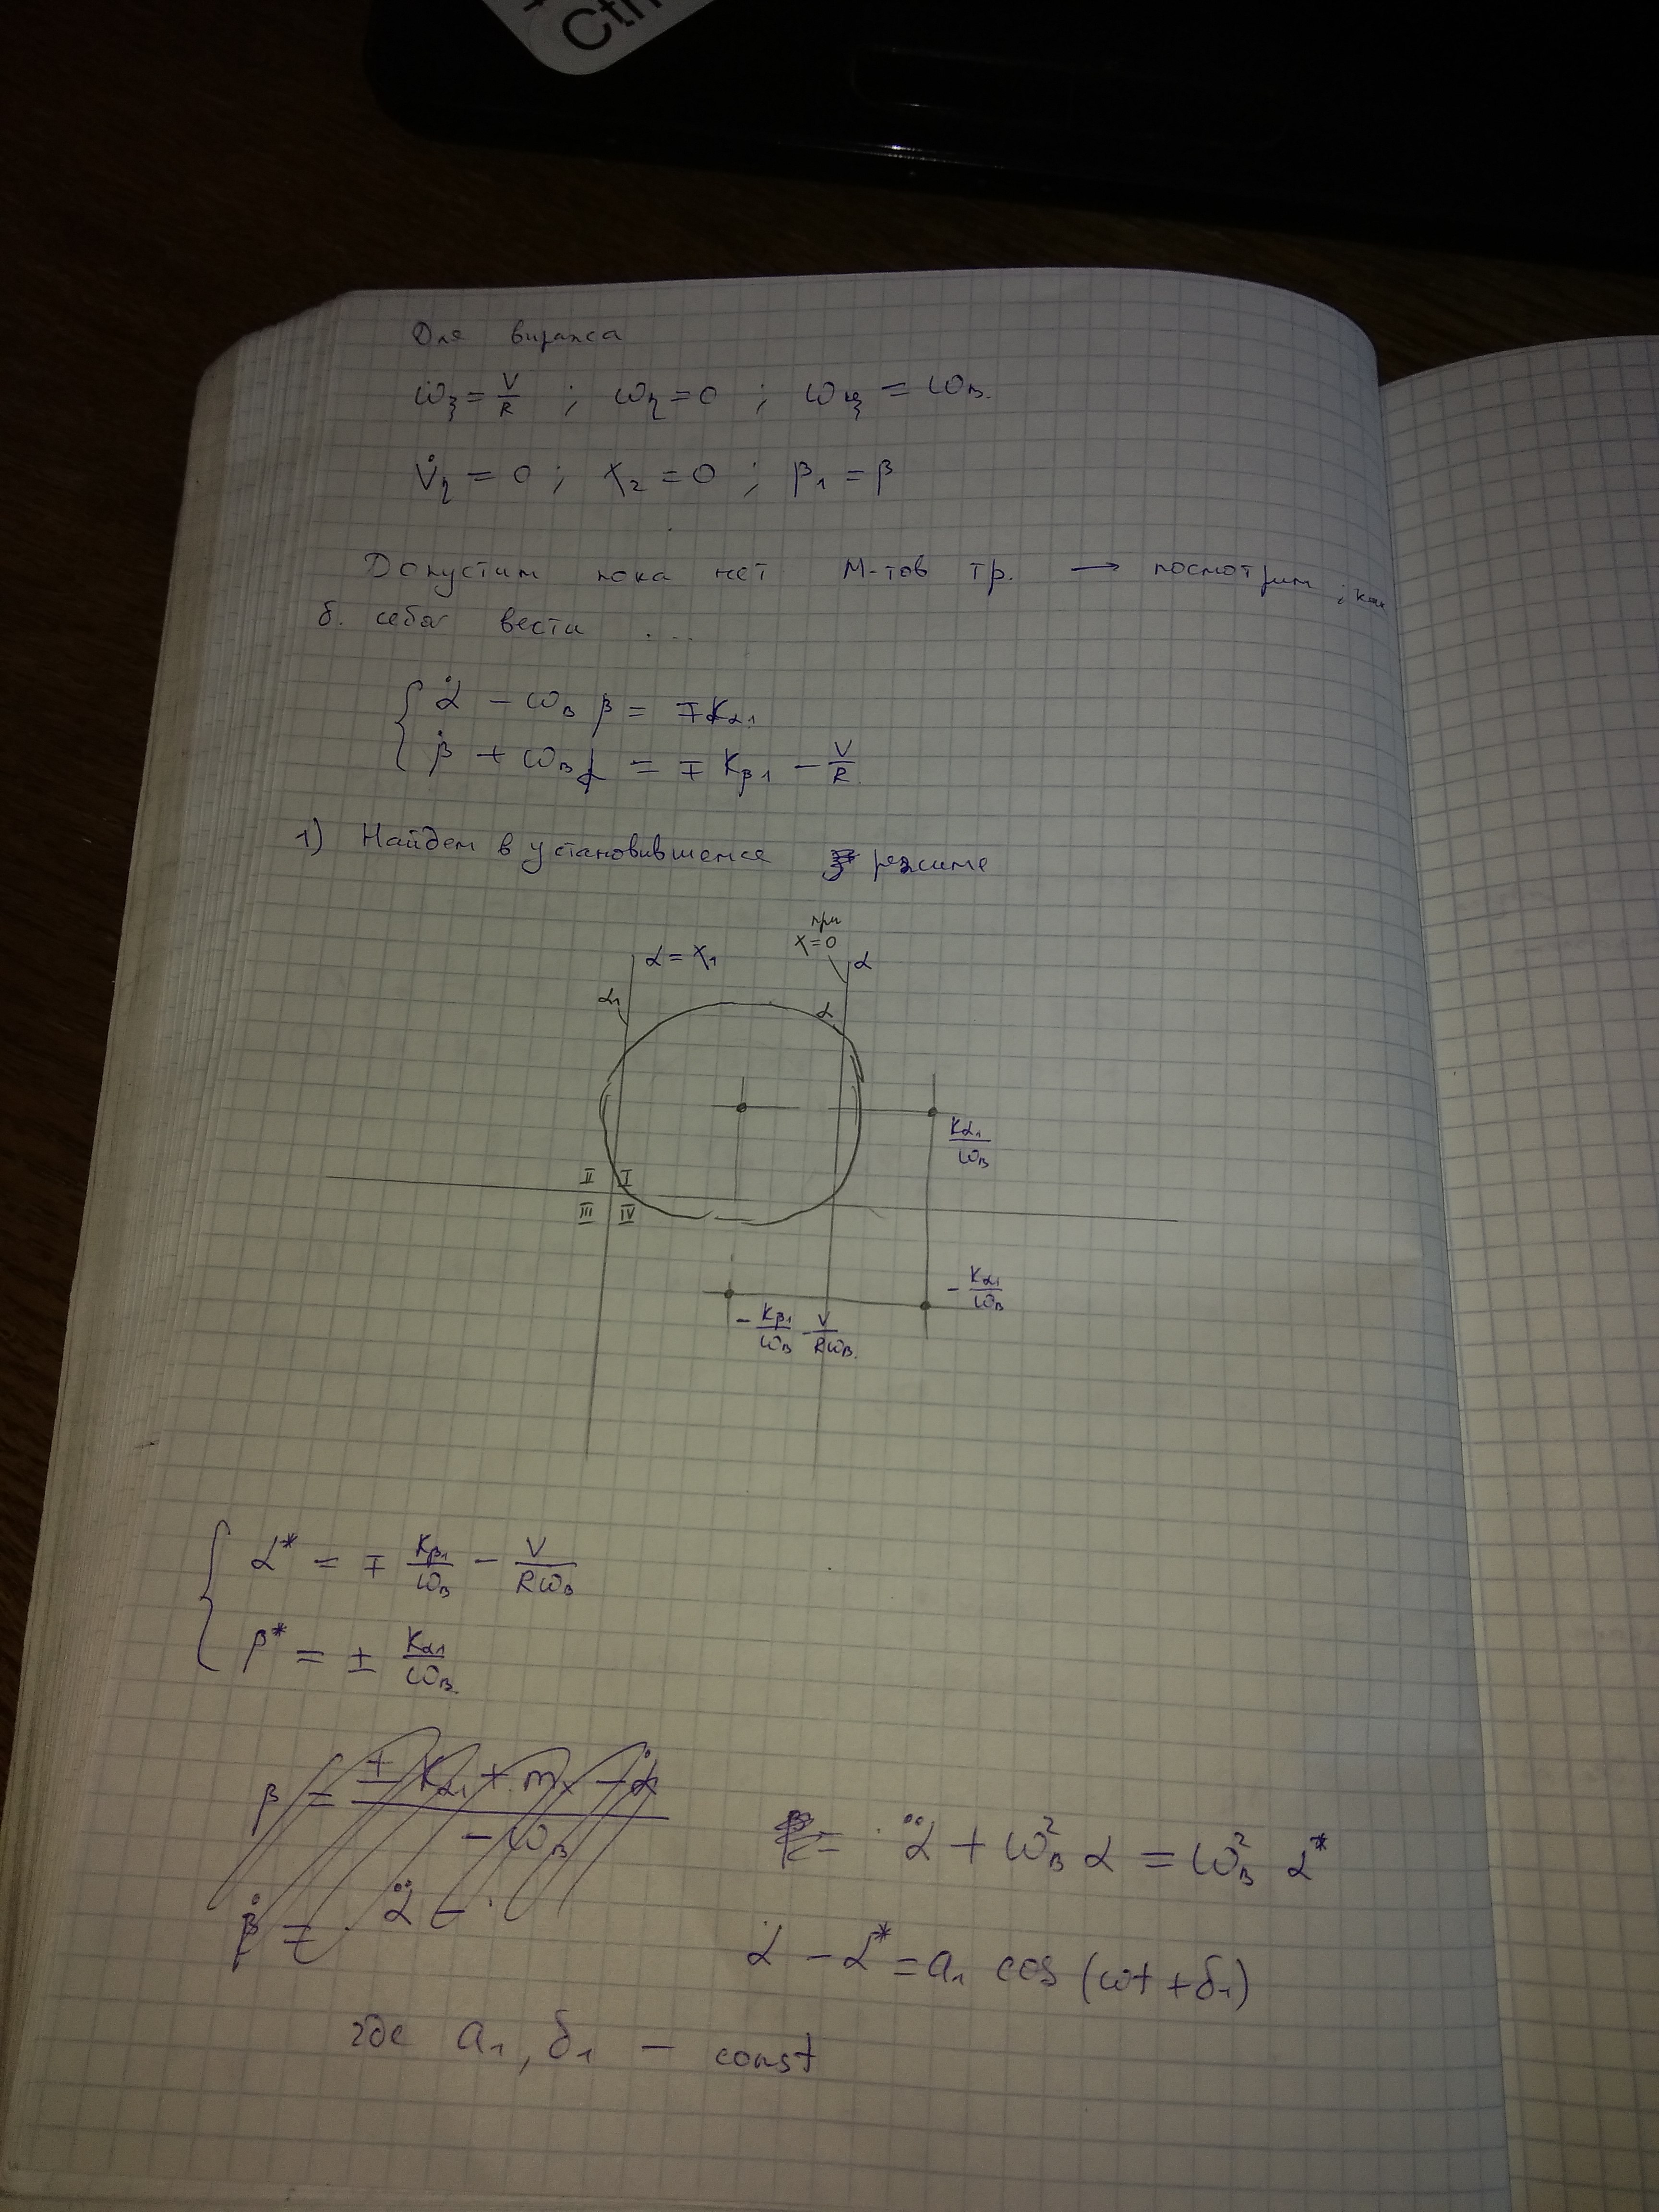 Ctrl
Для виража
ω_ξ = V/R ; ω_η = 0 ; ω_ζ = ω_в.
V̇_η = 0 ; χ₂ = 0 ; β₁ = β
Допустим пока нет М-тов тр. → посмотрим, как
б. себя вести ...
{ α̇ - ω_в β = ∓K_α1
β̇ + ω_в α = ∓ K_β1 - V/R.
1) Найдем в установившемся режиме
при
α = χ₁ χ=0 α
α₁ α
K_α1/ω_в
II I
III IV
- K_α1/ω_в
- K_β1/ω_в - V/Rω_в.
{ α* = ∓ K_β1/ω_в - V/Rω_в
β* = ± K_α1/ω_в.
α̈ + ω_в² α = ω_в² α*
α - α* = a₁ cos (ωt + δ₁)
где a₁, δ₁ - const